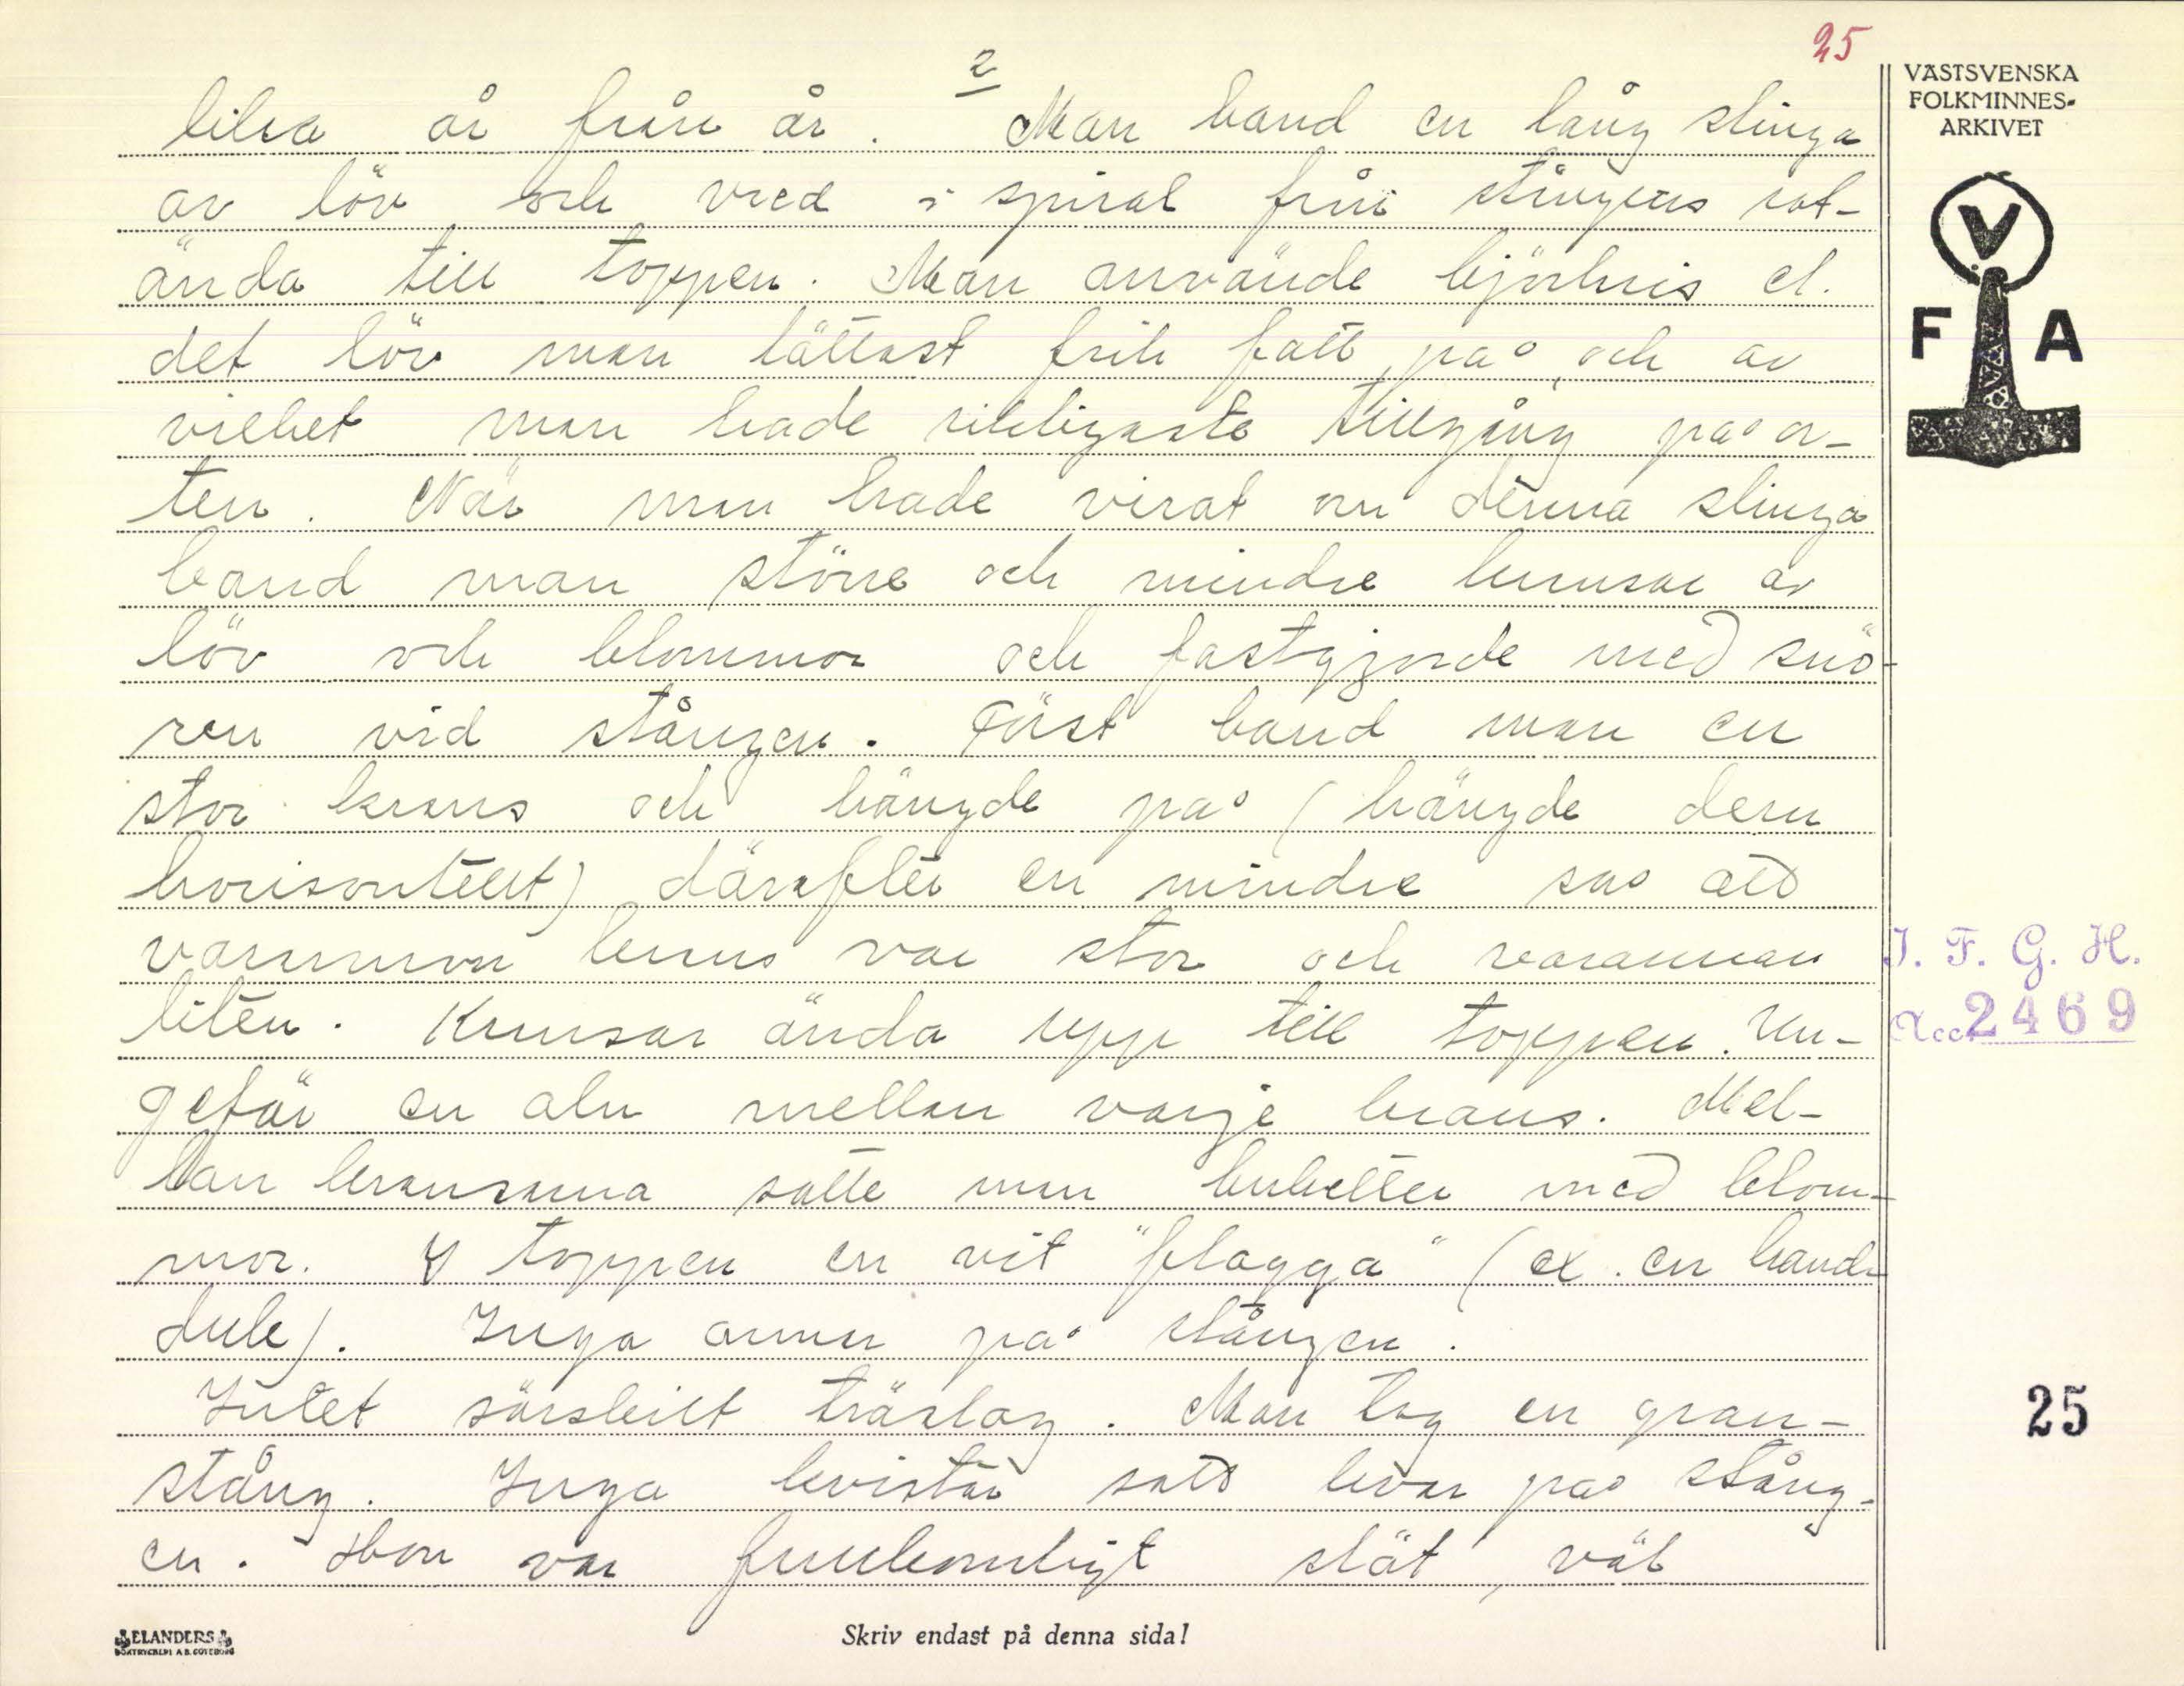 25
2
lika år från år. Man band en lång slinga
av löv och vred i spiral från stångens rot-
ända till toppen. Man använde björkris el.
det löv man lättast fick fatt på och av
vilket man hade rikligaste tillgång på or-
ten. När man hade virat om denna slinga
band man större och mindre kransar av
löv och blommor och fastgjorde med snö-
ren vid stången. Först band man en
stor krans och hängde på (hängde dem
horisontellt) därefter en mindre så att
varannan krans var stor och varannan
liten. Kransar ända upp till toppen. Un-
gefär en aln mellan varje krans. Mel-
lan kransarna satte man buketter med blom-
mor. I toppen en vit "flagga" (ex. en hand-
duk). Inga armar på stången.
Intet särskilt träslag. Man tog en gran-
stång. Inga kvistar satt kvar på stång-
en. Hon var fullkomligt slät, väl
VÄSTSVENSKA
FOLKMINNES-
ARKIVET
V
F A
I. F. G. H.
Acc. 2469
25
ELANDERS
BOKTRYCKERI A.B. GÖTEBORG
Skriv endast på denna sida!